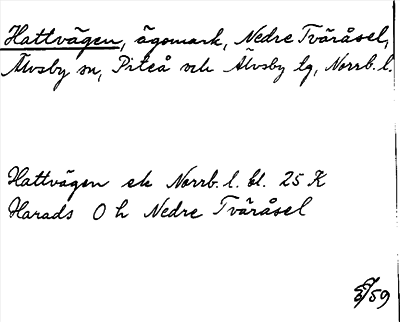 Hattvägen, ägomark, Nedre Tväråsel,
Älvsby sn, Piteå och Älvsby tg, Norrb. l.
Hattvägen ek Norrb. l. bl. 25 K
Harads O h Nedre Tväråsel
/59